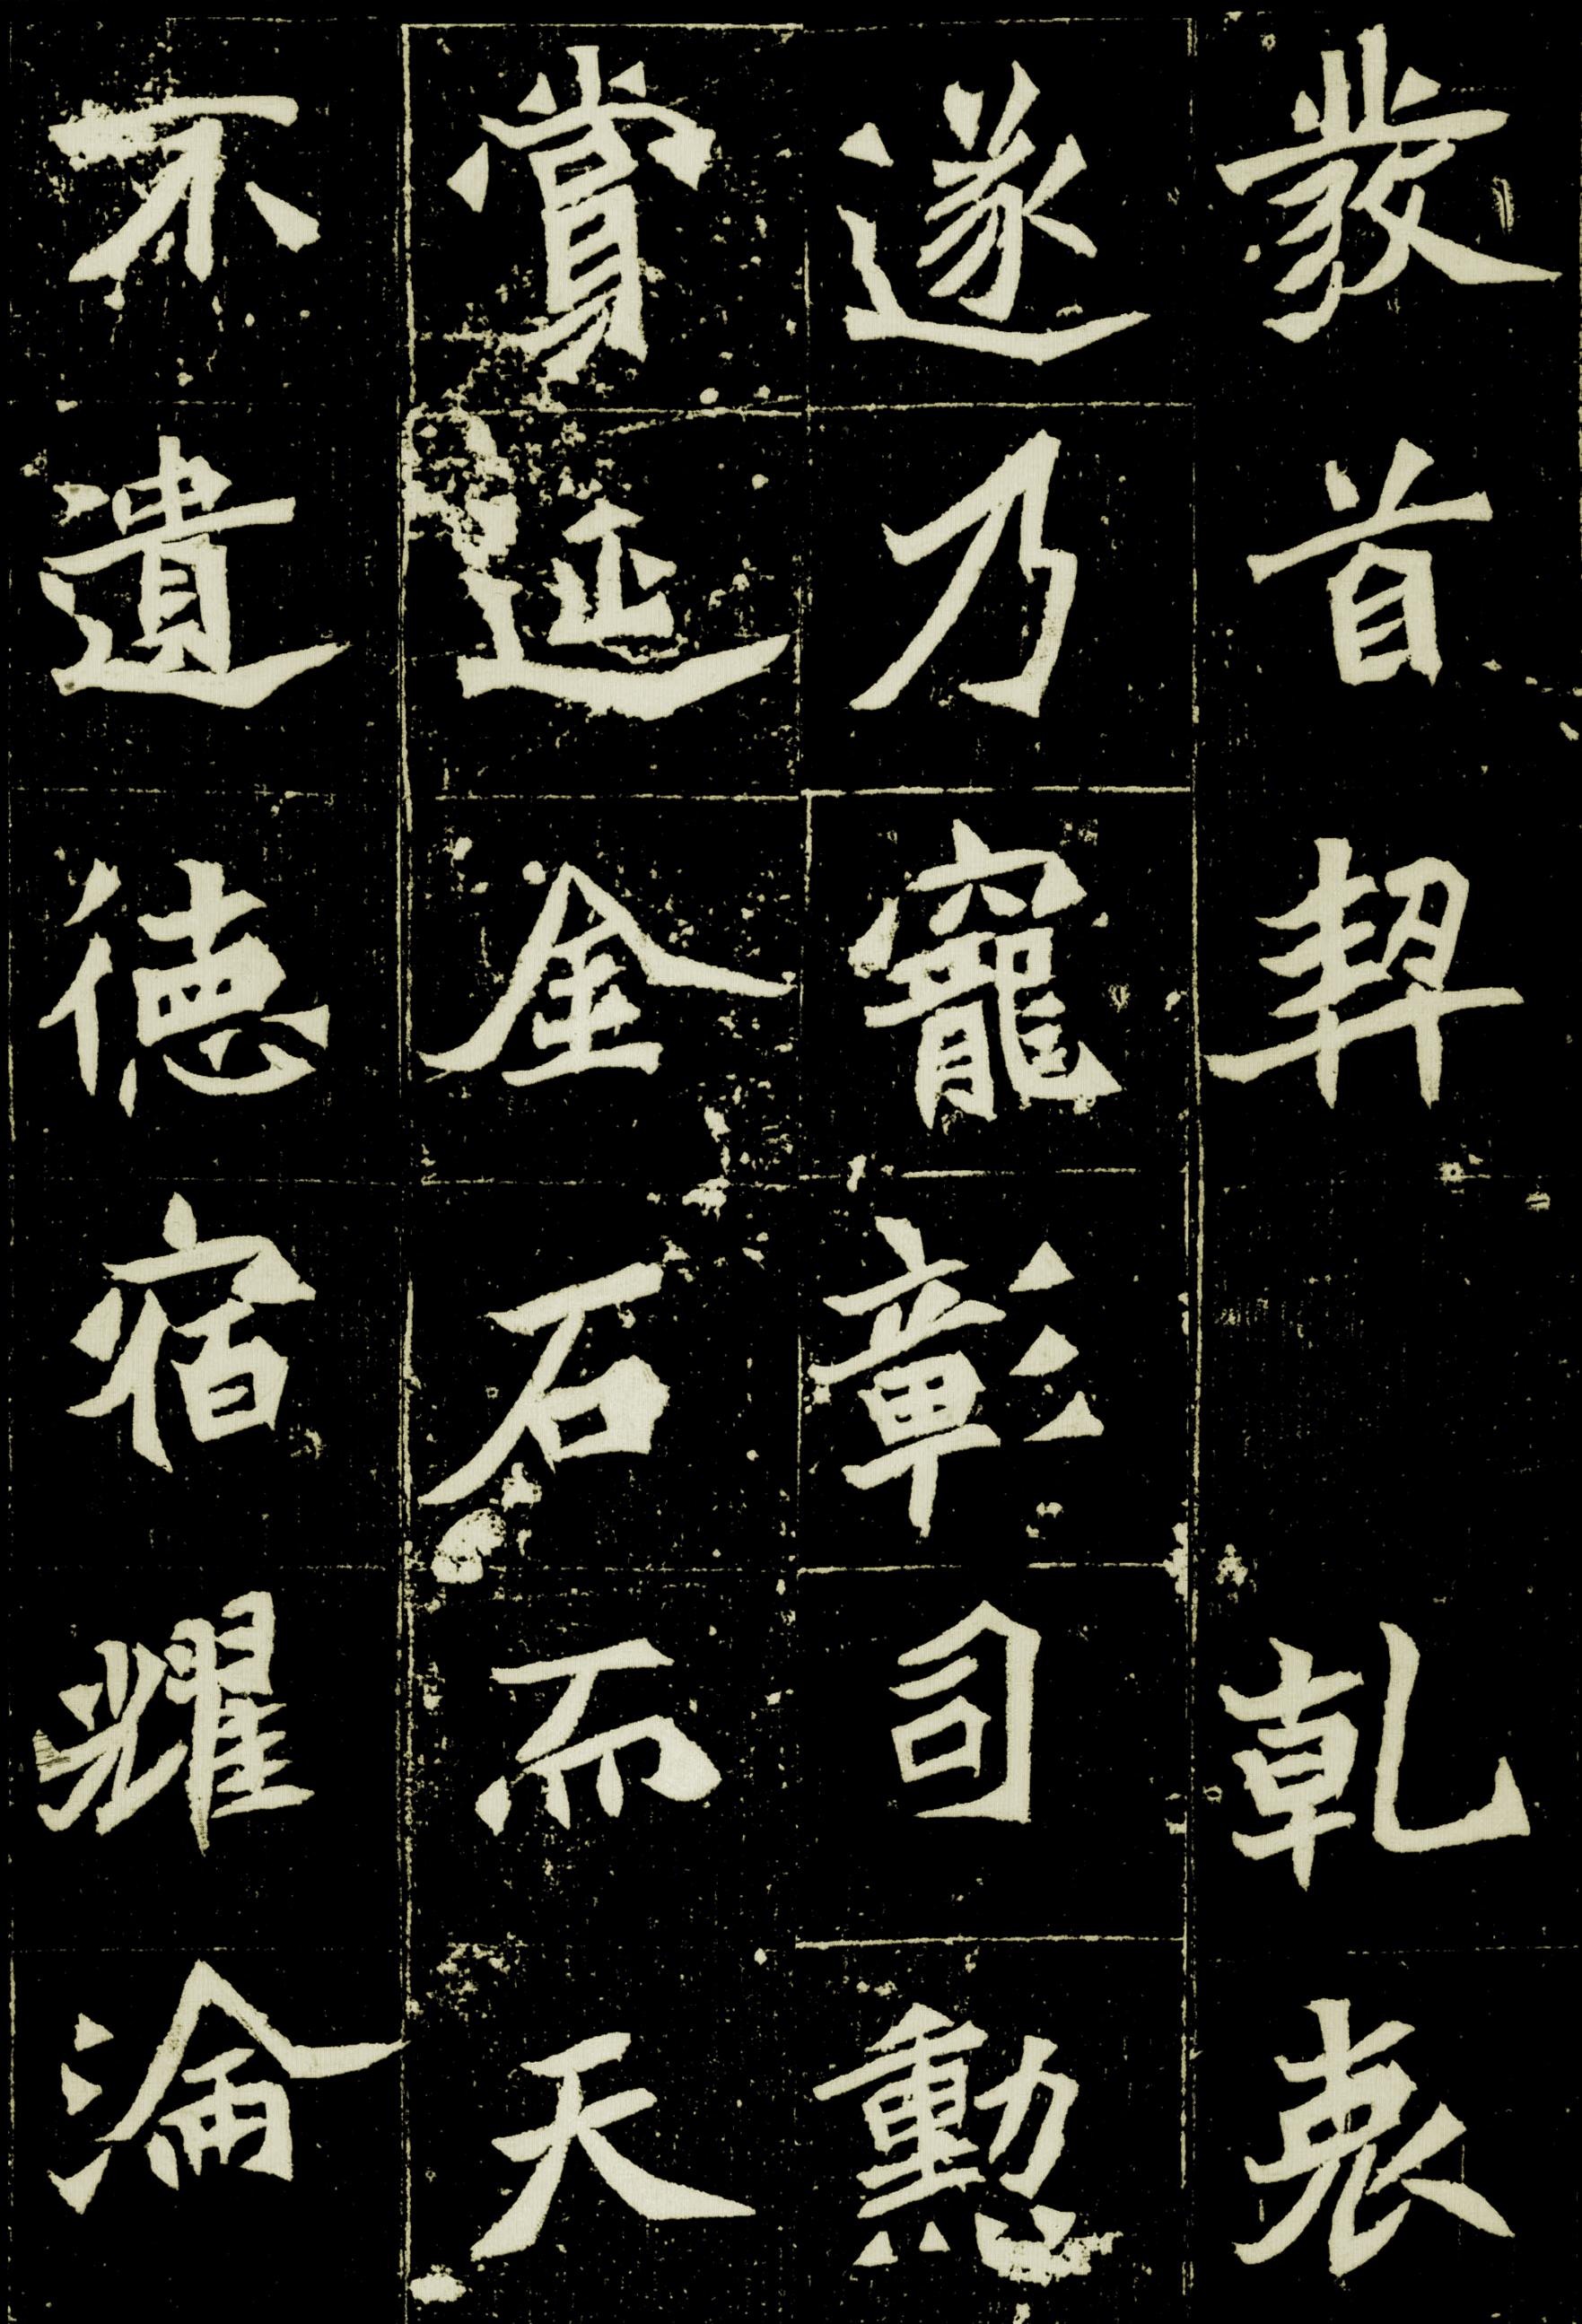 發首契 乹衷
遂乃寵彰司勳
賞延金石而天
不遺德宿耀淪